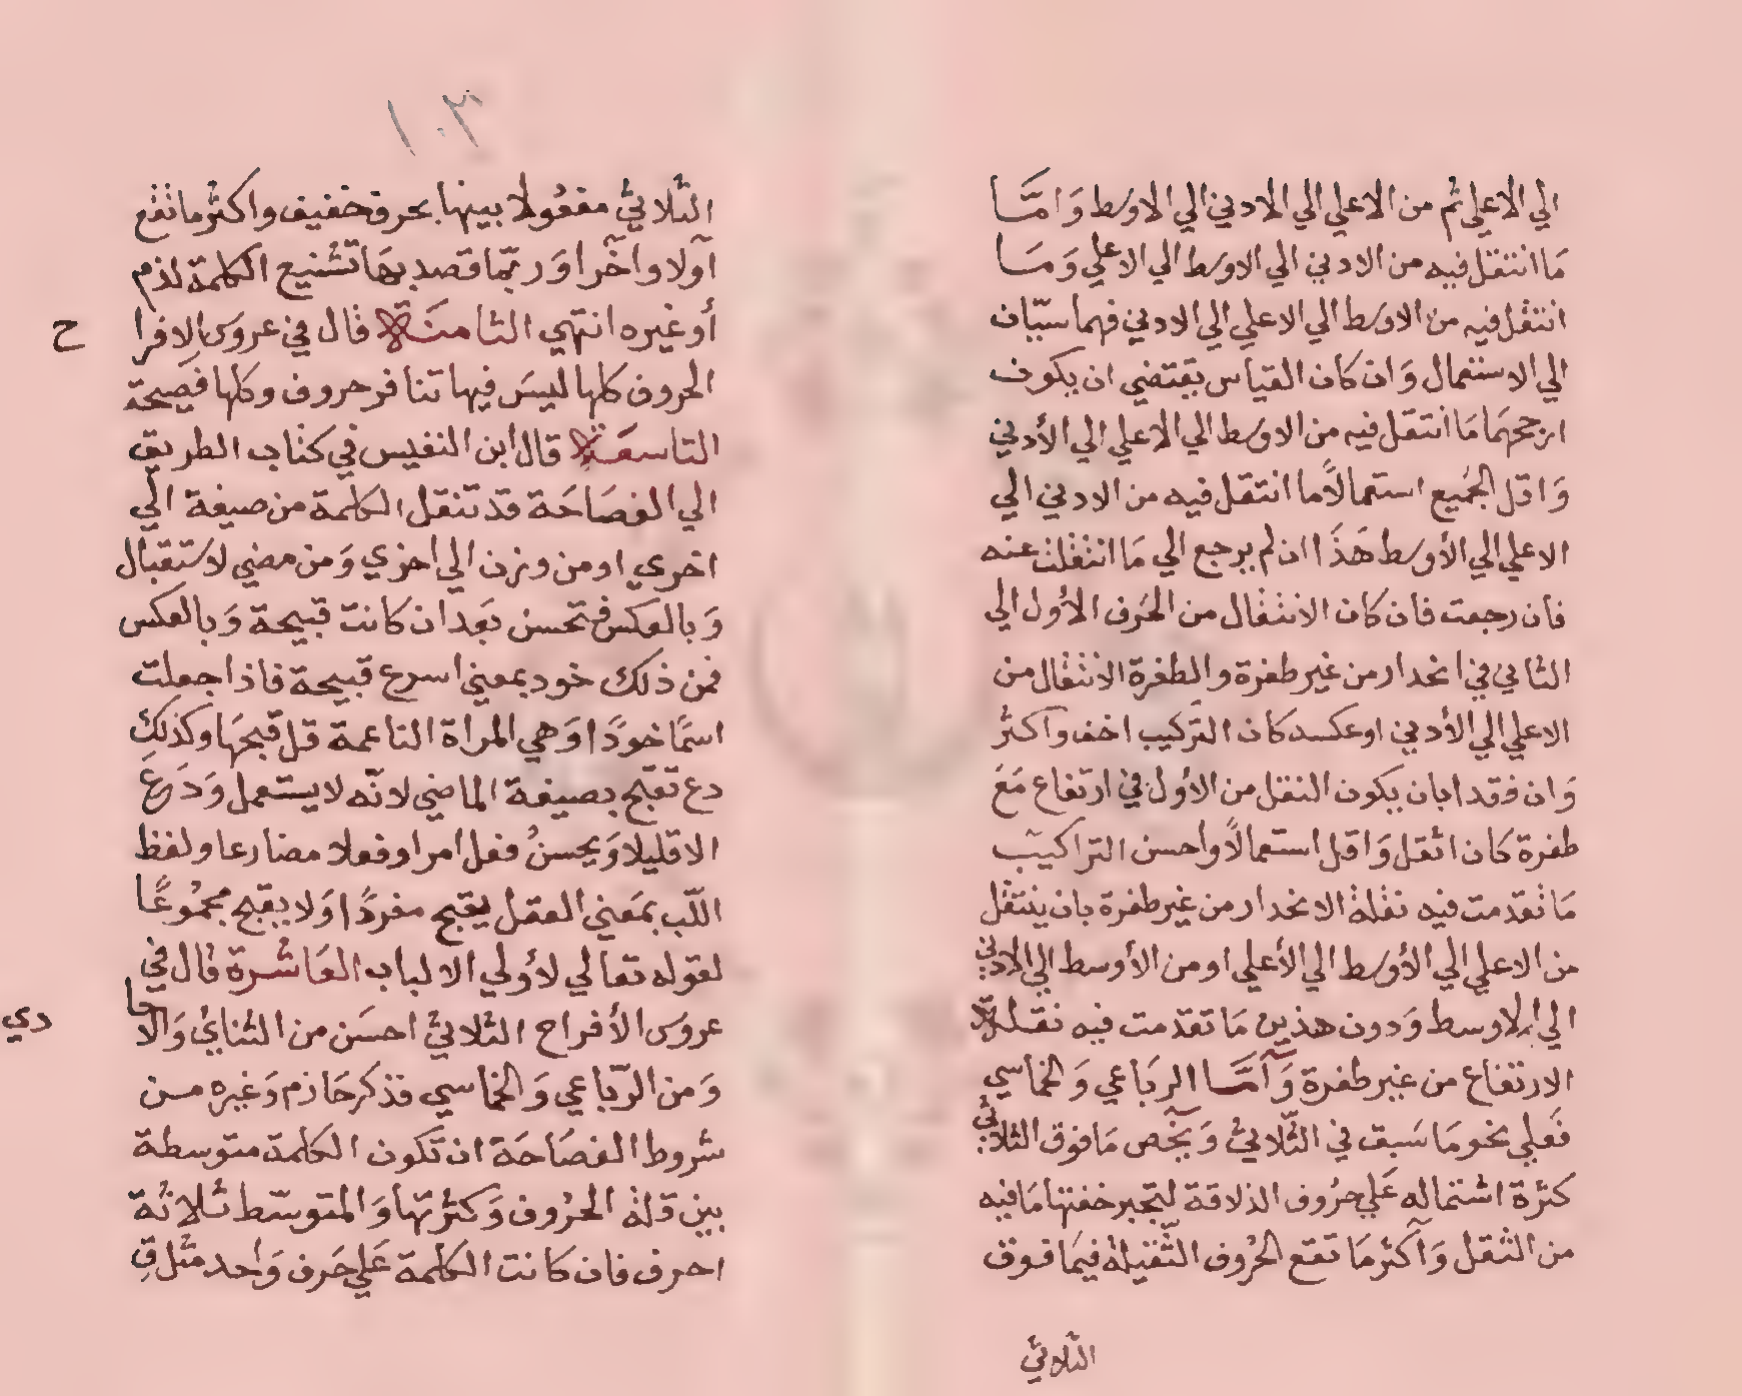 الي الاعلي ثم من الاعلي الي الادني الي الاوسط وَامَّا
مَا انتقل فيه من الادني الي الاوسط الي الاعلي وَمَا
انتقل فيه من الاوسط الي الاعلي الي الادني فهما سيّان
الي الاستعمال وَان كان القياس يقتضي ان يكون
ارجحهمَا مَا انتقل فيه من الاوسط الي الاعلي الي الأدني
وَاقل الجميع استعمالاً ما انتقل فيه من الادني الي
الاعلي الي الأوسط هَذَا ان لم يرجع الي مَا انتقلت عنه
فان رجعت فان كان الانتقال من الحَرف الأول الي
الثاني في انحدار من غير طفرة والطفرة الانتقال من
الاعلي الي الأدني او عكسه كان التركيب اخف وَاكثر
وَان فقد ابان يكون النقل من الأول في ارتفاع مَعَ
طفرة كان اثقل وَاقل استعمالاً واحسن التراكيب
مَا تقدمت فيه نقلة الانحدار من غير طفرة بان ينتقل
من الاعلي الي الأوسط الي الأعلي او من الأوسط الي الادني
الي الاوسط وَدون هذين مَا تقدمت فيه نقلة
الارتفاع من غير طفرة وَأمَّا الربَاعي وَالخماسي
فَعلي نحو مَا سَبق في الثّلاثيّ وَيخص مَا فوق الثلاثيّ
كثرة اشتماله عَلي حرُوف الذلاقة لتجبر خفتها مَا فيه
من الثقل وَأكثر مَا تقع الحُروف الثّقيلة فيمَا فوق
الثلاثي
١٠٣
الثلاثيّ مفعُولا بينها بحرف خفيف واكثر ما تقع
أولا وآخرا وَربّما قصد بهَا تشنيع الكلمة لذم
أو غيره انتهي الثامنَة قال في عروس الافرا
ح
الحروف كلها ليسَ فيها تنافر حروف وكلها فصيحة
التاسعَة قال ابن النفيس في كتاب الطريق
الي الفصَاحَة قد تنقل الكلمة من صيغة الي
اخري او من وزن الي اخري وَمن مضي لاستقبال
وَبالعكس فتحسن بَعد ان كانت قبيحة وَبالعكس
فمن ذلك خود بمعني اسرع قبيحة فاذا جعلت
اسمًا خودًا وَهي المراة الناعمة قل قبحهَا وكذلكَ
دع تقبح بصيغة الماضي لانّه لا يستعمل وَدَعَ
الا قليلا وَيحسنُ فعل امر او فعلا مضارعا ولفظ
اللّب بمَعني العقل يقبح مفردًا وَلا يقبح مجمُوعًا
لقوله تعالي لأولي الالباب العَاشرة قال في
عروس الأفراح الثلاثيّ احسَن من الثنائيّ وَالاحا
دي
وَمن الربّاعي وَالخماسي فذكر حَازم وَغيره من
شروط الفصَاحَة ان تكون الكلمة متوسطة
بين قلة الحُروف وَكثرتها وَالمتوسّط ثلاثة
احرف فان كانت الكلمة عَلي حَرف وَاحد مثل قِ